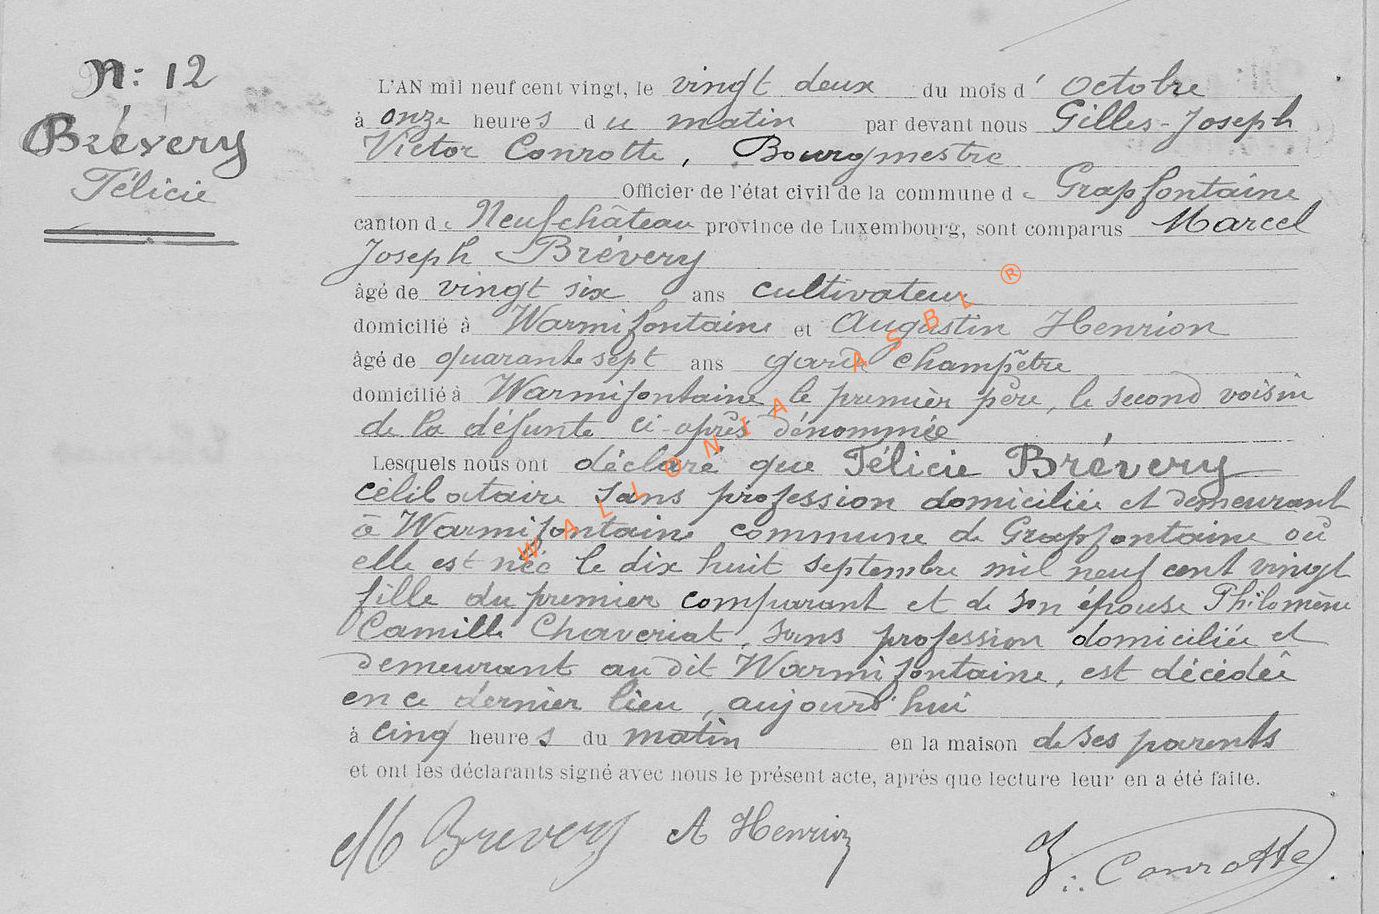 N: 12
Brévery
Félicie
L'AN mil neuf cent vingt, le vingt deux du mois d' octobre
à onze heures du matin par devant nous Gilles-Joseph
Victor Conrotte, Bourgmestre
Officier de l'état civil de la commune de Grapfontaine
canton de Neufchâteau province de Luxembourg, sont comparus Marcel
Joseph Brévery
âgé de vingt six ans cultivateur
domicilié à Warmifontaine et Augustin Henrion
âgé de quarante sept ans garde champêtre
domicilié à Warmifontaine, le premier père, le second voisin
de la défunte ci-après dénommée
Lesquels nous ont déclaré que Félicie Brévery
célibataire sans profession domiciliée et demeurant
à Warmifontaine commune de Grapfontaine où
elle est née le dix huit septembre mil neuf cent vingt
fille du premier comparant et de son épouse Philomène
Camille Chaveriat, sans profession domiciliée et
demeurant au dit Warmifontaine, est décédée
en ce dernier lieu, aujourd'hui
à cinq heures du matin en la maison de ses parents
et ont les déclarants signé avec nous le présent acte, après que lecture leur en a été faite.
M Brevery A Henrion
V. Conrotte
WALLONIA ASBL ®